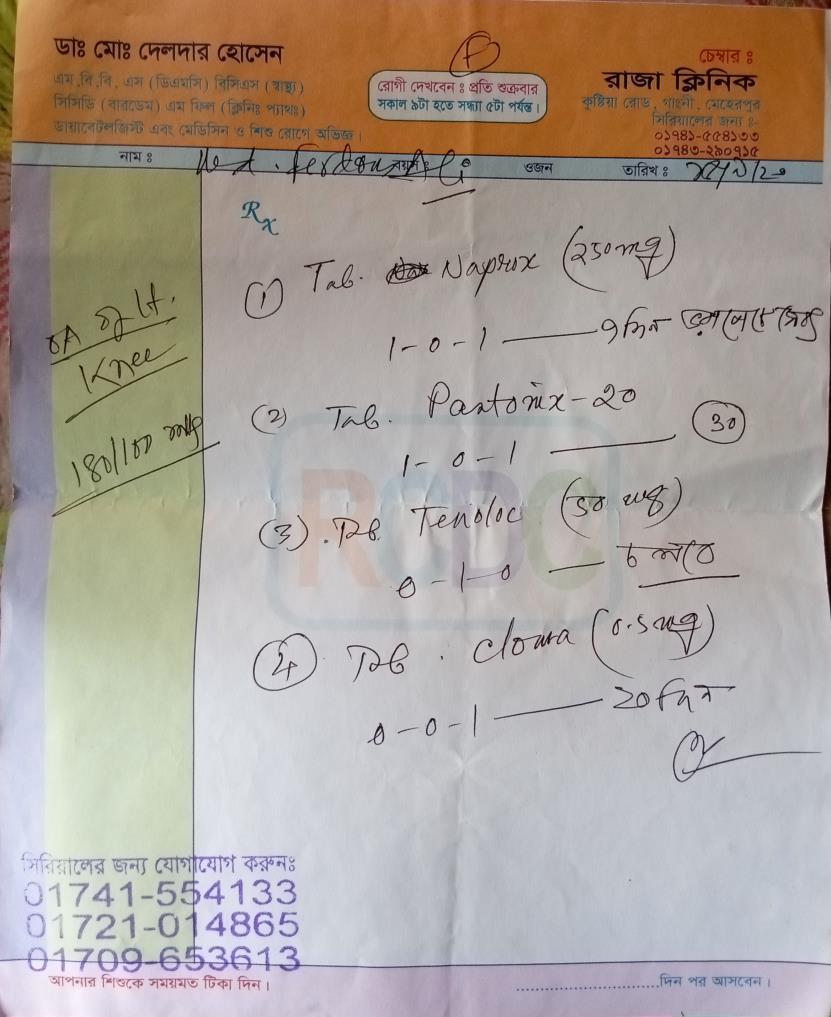 ডাঃ মোঃ দেলদার হোসেন
এম.বি.বি. এস (ডিএমসি) বিসিএস (স্বাস্থ্য)
সিসিডি (বারডেম) এম ফিল (ক্লিনিঃ প্যাথঃ)
ডায়াবেটলজিস্ট এবং মেডিসিন ও শিশু রোগে অভিজ্ঞ।
রোগী দেখবেন : প্রতি শুক্রবার
সকাল ৯টা হতে সন্ধ্যা ৫টা পর্যন্ত।
চেম্বার :
রাজা ক্লিনিক
কুষ্টিয়া রোড, গাংনী, মেহেরপুর
সিরিয়ালের জন্য :-
০১৭৪১-৫৫৪১৩৩
০১৭৪৩-২৯০৭১৫
নাম : Md. Ferdous Ali ওজন তারিখ :
Rx
OA of Lt.
Knee
180/100 mmHg
(1) Tab. Naprox (250mg)
1-0-1 — ৭ দিন
(2) Tab. Pantonix-20
1-0-1 — (30)
(3). Tab. Tenoloc (50 mg)
0-1-0 — চলবে
(4). Tab. Clonra (0.5mg)
0-0-1 — 20 দিন
RCDC
সিরিয়ালের জন্য যোগাযোগ করুনঃ
01741-554133
01721-014865
01709-653613
আপনার শিশুকে সময়মত টিকা দিন।
দিন পর আসবেন।